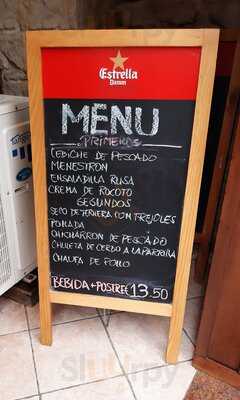 Estrella
Damm
MENU
PRIMEROS
CEBICHE DE PESCADO
MENESTRON
ENSALADILLA RUSA
CREMA DE ROCOTO
SEGUNDOS
SECO DE TERNERA CON FREJOLES
POLLADA
CHICHARRON DE PESCADO
CHULETA DE CERDO A LA PARRILLA
CHAUFA DE POLLO
BEBIDA + POSTRE €13.50